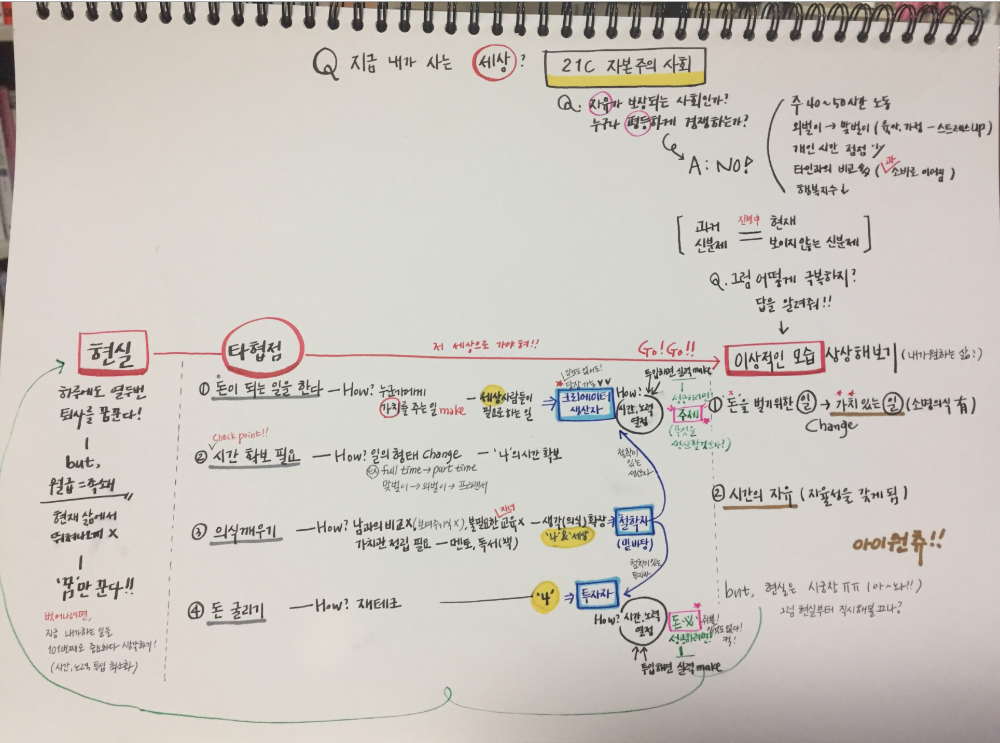 Q 지금 내가 사는 세상? 21C 자본주의 사회
Q. 자유가 보장되는 사회인가?
누구나 평등하게 경쟁하는가?
A : NO!
주 40~50시간 노동
외벌이 → 맞벌이 (육아, 가정 - 스트레스 up)
개인 시간 점점 ↓
타인과의 비교 (과소비로 이어짐)
행복지수↓
과거 신분제 진행中 현재 보이지 않는 신분제
Q. 그럼 어떻게 극복하지?
답을 알려줘!!
현실
타협점
저 세상으로 가야 해!!
Go! Go!!
이상적인 모습 상상해보기 (내가 원하는 삶:)
하루에도 열두번
퇴사를 꿈꾼다!
but,
월급=족쇄
현재 삶에서
뛰쳐나오게 X
'꿈'만 꾼다!!
벗어나려면,
지금 내가하는 일을
101번째로 중요하다 생각하기!
(시간, 노력, 투입 최소화)
① 돈이 되는 일을 한다 — How? 누군가에게
가치를 주는 일 make
— 세상사람들이
필요로 하는 일
⇒ 크리에이터
생산자
How?
투입하면 실력 make
시간, 노력
열정
성공하려면
주제
(무엇을
생산할것인가?)
check point!!
② 시간 확보 필요 — How? 일의 형태 change — '나'의 시간 확보
EX) full time → part time
맞벌이 → 외벌이 → 프리랜서
철학이
있는
생산자
③ 의식깨우기 — How? 남과의 비교X (보여주기식X), 불필요한 교육X — 생각(의식) 확장 ⇒ 철학자
자녀
가치관 정립 필요 — 멘토, 독서(책)
'나'&'세상'
(밑바탕)
철학이 있는
투자자
④ 돈 굴리기 — How? 재테크 — '나' ⇒ 투자자
How? 시간, 노력
열정
성공하려면
투입하면 실력 make
① 돈을 벌기위한 일 → 가치 있는 일 (소명의식 有)
Change
② 시간의 자유 (자율성을 갖게 됨)
아이원츄!!
but, 현실은 시궁창 ㅠㅠ (아~놔!!)
그럼 현실부터 직시해볼까나?